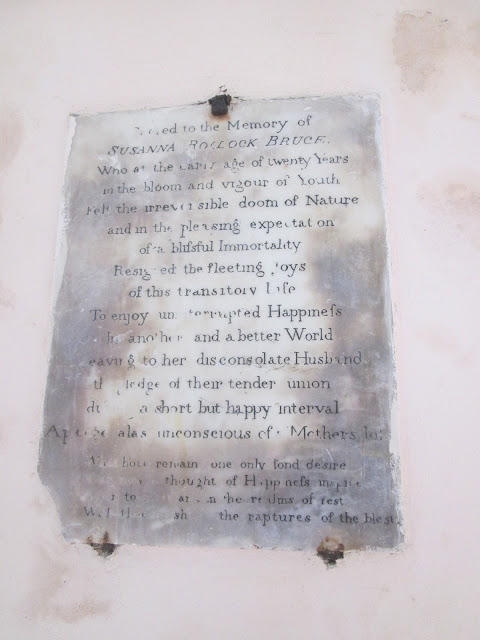 to the Memory of
SUSANNA BRUCE.
Who at the early age of twenty Years
in the bloom and vigour of Youth
Felt the irreversible doom of Nature
and in the pleasing expectation
of a blifsful Immortality
Resigned the fleeting Joys
of this transitory Life
To enjoy uninterrupted Happinefs
In another and a better World
Leaving to her disconsolate Husband
the pledge of their tender union
a short but happy interval
alas unconscious of a Mothers
remain one only fond desire
thought of Happinefs
to in the realms of rest
the raptures of the blest